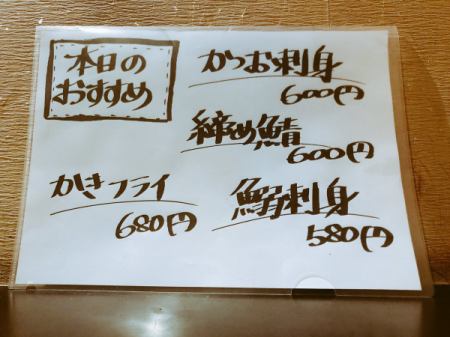 本日の
おすすめ
かつお刺身
600円
締め鯖
600円
かきフライ
680円
鰯刺身
580円